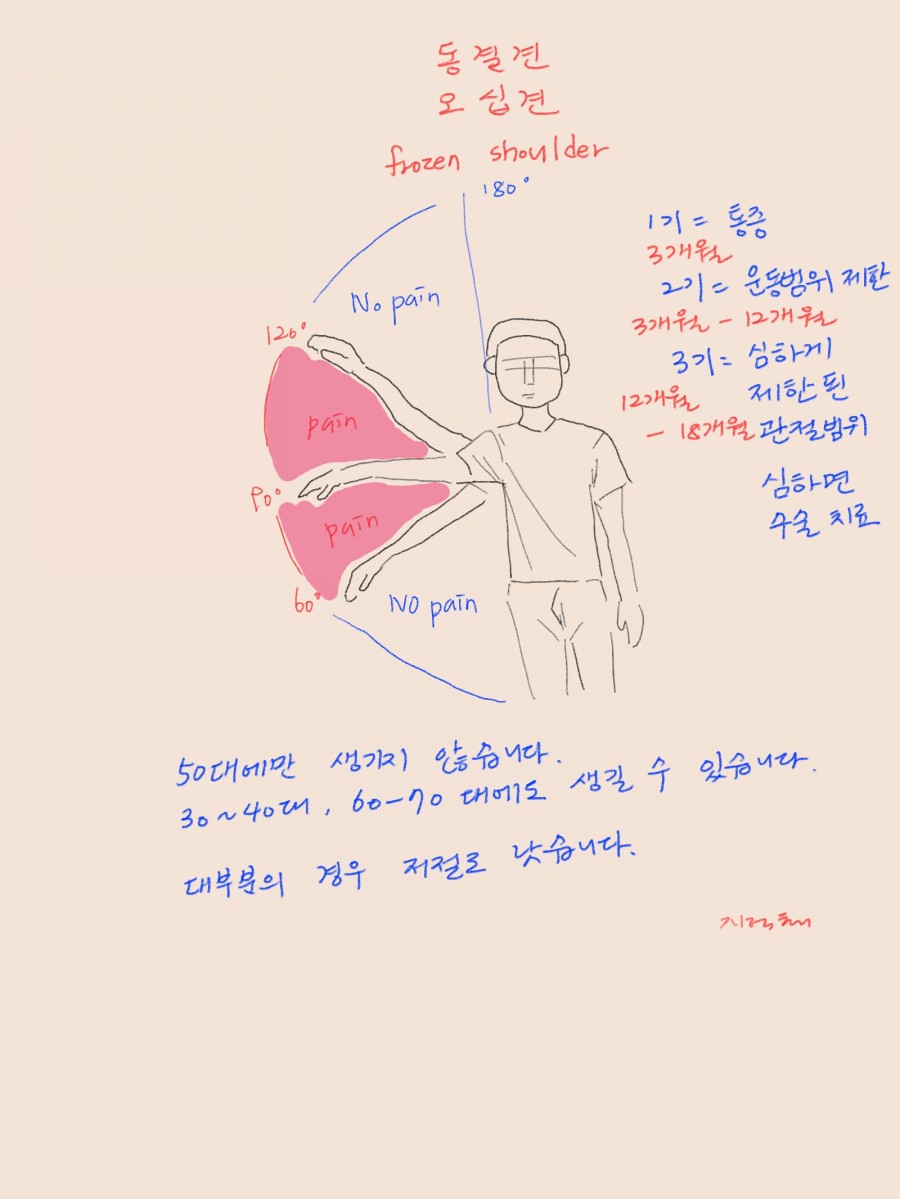 동결견
오십견
frozen shoulder
180°
No pain
120°
pain
90°
pain
60°
NO pain
1기 = 통증
3개월
2기 = 운동범위 제한
3개월 - 12개월
3기 = 심하게
12개월 제한된
- 18개월 관절범위
심하면
수술 치료
50대에만 생기지 않습니다.
30~40대, 60-70대에도 생길 수 있습니다.
대부분의 경우 저절로 낫습니다.